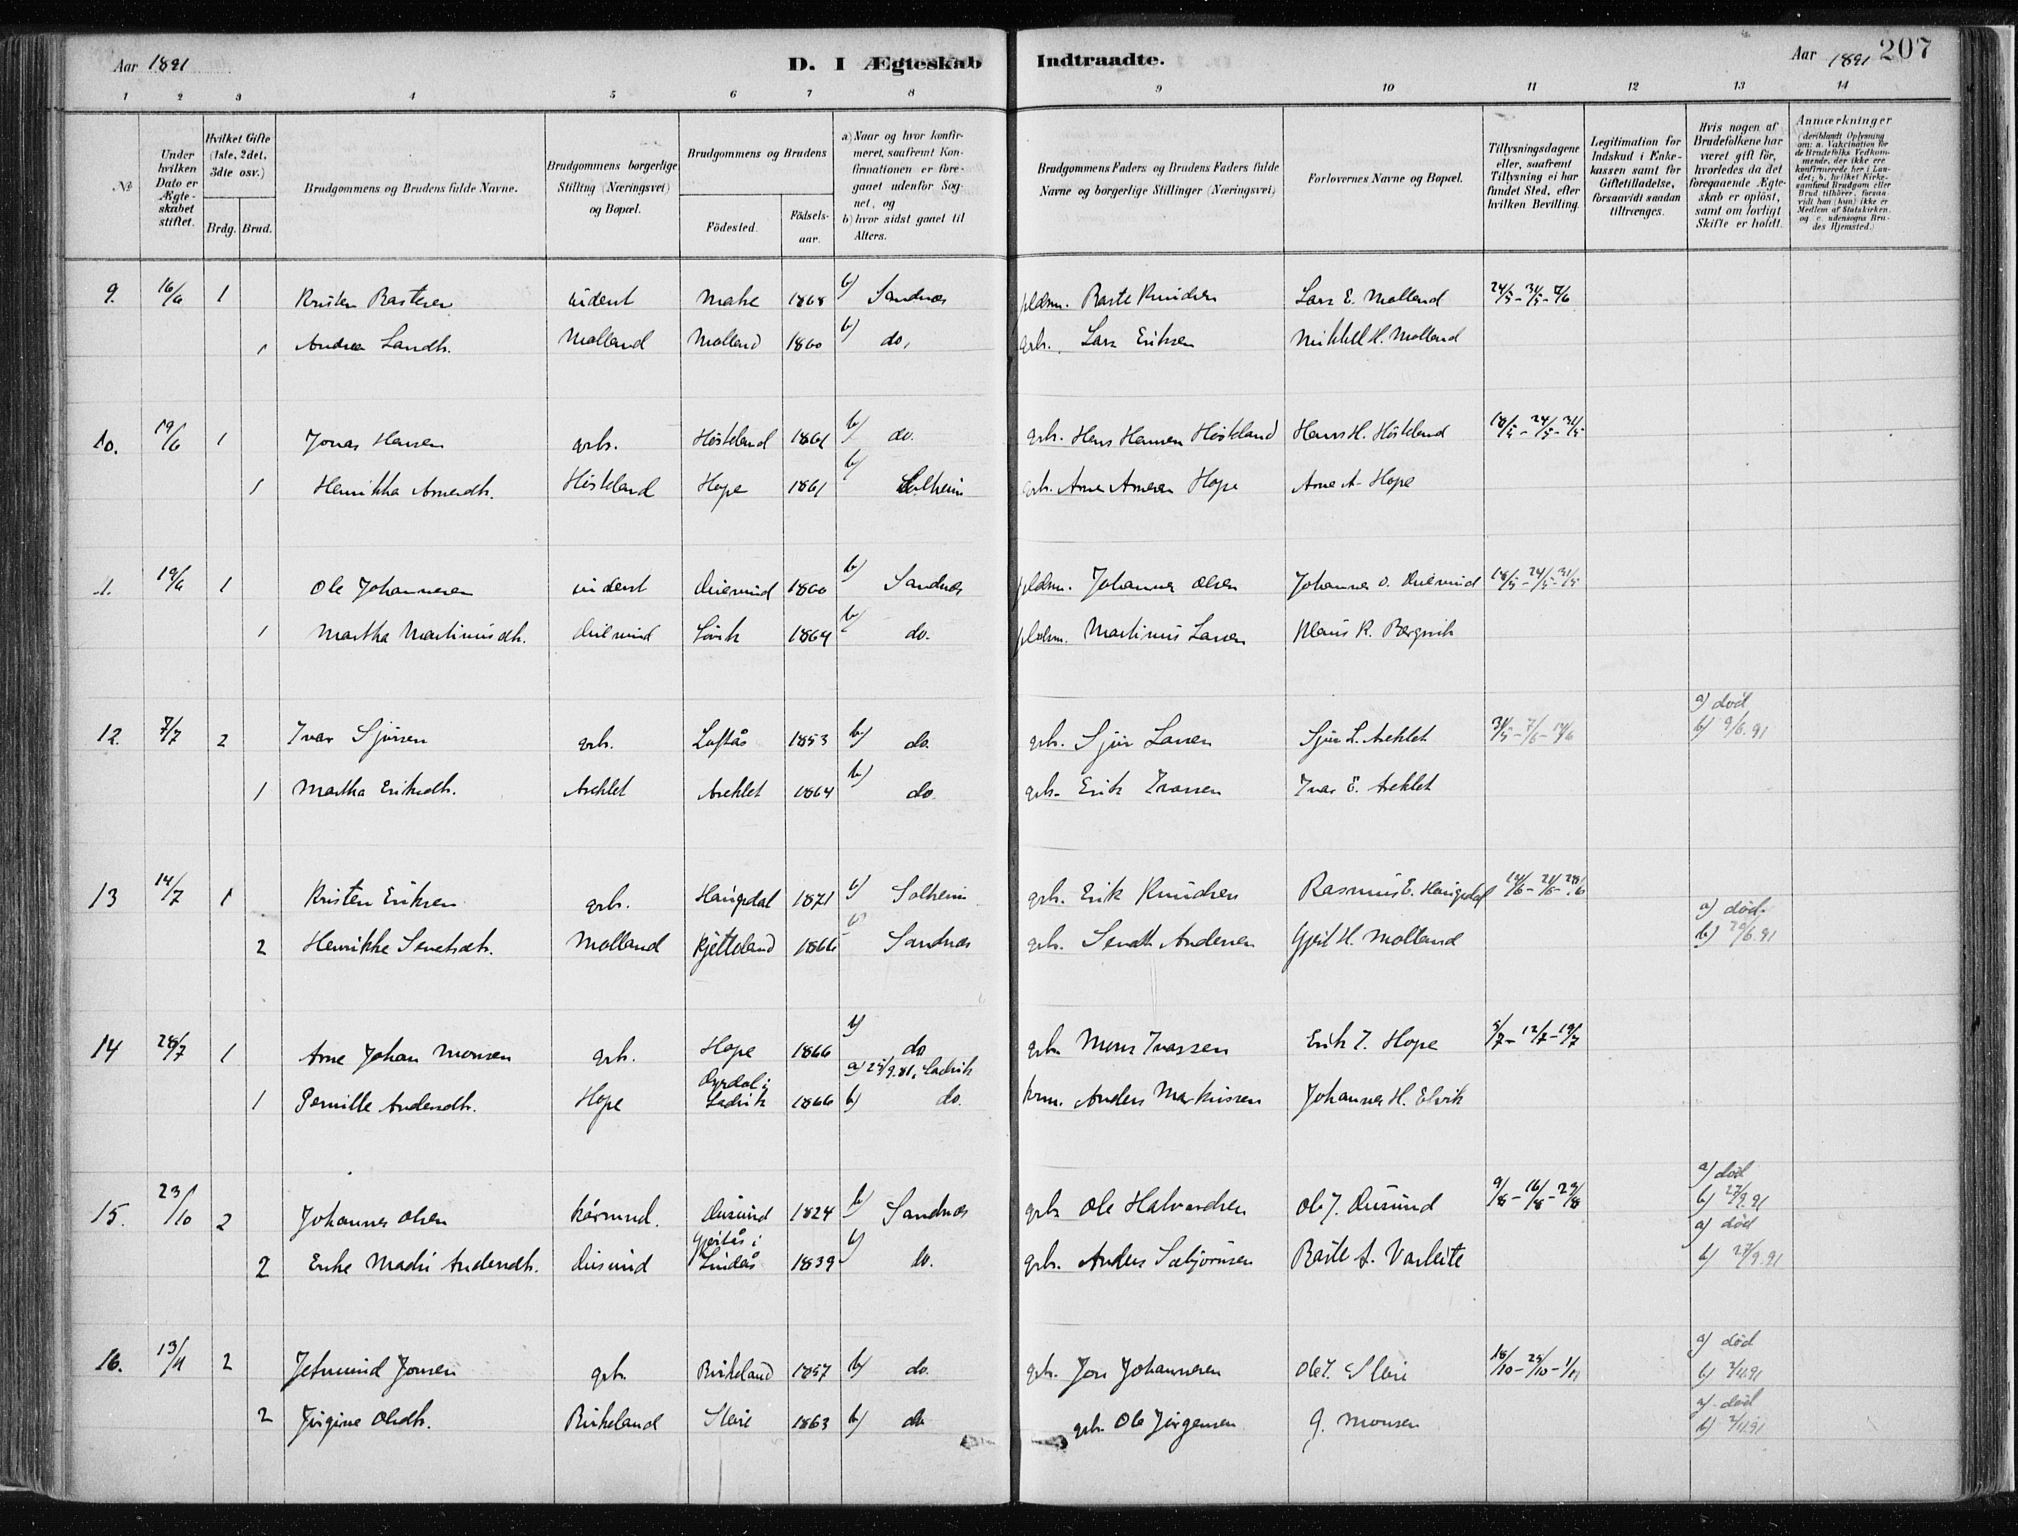 Aar 1891 D. I Ægteskab Indtraadte. Aar 1891 207
1 2 3 4 5 6 7 8 9 10 11 12 13 14
№
Under hvilken Dato er Ægte-skabet stiftet.
Hvilket Gifte (1ste, 2det, 3dte osv.)
Brdg. Brud.
Brudgommens og Brudens fulde Navne.
Brudgommens borgerlige Stilling (Næringsvei) og Bopæl.
Brudgommens og Brudens
Födested. Födsels-aar.
a) Naar og hvor konfir-meret, saafremt Kon-firmationen er fore-gaaet udenfor Sog-net, og
b) hvor sidst gaaet til Alters.
Brudgommens Faders og Brudens Faders fulde Navne og borgerlige Stillinger (Næringsvei)
Forlovernes Navne og Bopæl.
Tillysningsdagene eller, saafremt Tillysning ei har fundet Sted, efter hvilken Bevilling.
Legitimation for Indskud i Enke-kassen samt for Giftetilladelse, forsaavidt saadan tiltrænges.
Hvis nogen af Brudefolkene har været gift för, hvorledes da det foregaaende Ægte-skab er oplöst, samt om lovligt Skifte er holdt.
Anmærkninger (deriblandt Oplysning om: a. Vakcination for de Brudefolks Vedkom-mende, der ikke ere konfirmerede her i Lan-det; b. hvilket Kirke-samfund Brudgom eller Brud tilhörer, forsaa-vidt han (hun) ikke er Medlem af Statskirken, og c. udensogns Bru-des Hjemsted.)
9. 16/6 1 Kristen Bastesen inderst Matre 1868 b) Sandnæs pldsm. Baste Knudsen Lars E. Molland 24/5 - 31/5 - 7/6
1 Andrea Larsdtr. Molland Molland 1860 b) do. grb. Lars Eriksen Mikkel H. Molland
10. 19/6 1 Jonas Hansen grb. Höskeland 1861 b) do. grb. Hans Hansen Höskeland Hans H. Höskeland 18/5 - 24/5 - 31/5
1 Henrikka Arnesdtr. Höskeland Hope 1861 b) Solheim grb. Arne Arnesen Hope Arne A. Hope
11. 19/6 1 Ole Johannesen inderst 1860 b) Sandnæs pldsm. Johannes Olsen Johannes O. 18/5 - 24/5 - 31/5
1 Martha Martinusdtr. Lövik 1864 b) do. pldsm. Martinus Larsen Klaus R. Bergsvik
12. 7/7 2 Ivar Sjursen grb. Loftås 1853 b) do. grb. Sjur Larsen Sjur L. 31/5 - 7/6 - 14/6 a) död b) 9/6.91
1 Martha Eriksdtr. 1864 b) do. grb. Erik Ivarsen Ivar E.
13 14/7 1 Kristen Eriksen grb. Haugsdal 1871 b) Solheim grb. Erik Knudsen Rasmus E. Haugsdal 14/6 - 21/6 - 28/6
2 Henrikke Senetsdtr. Molland Kjetteland 1866 b) Sandnæs grb. Andersen H. Molland a) död. b) 29/6.91
14 28/7 1 Arne Johan Monsen grb. Hope 1866 b) do grb Mons Ivarsen Erik I. Hope 5/7 - 12/7 - 19/7
1 Pernille Andersdtr. Hope Ladvik 1866 a) 25/9.81, Ladvik b) do. Anders Markussen Johannes H. Elvik
15. 23/10 2 Johannes Olsen kårmnd. 1824 b) Sandnæs grb Ole Halvardsen Ole J. 9/8 - 16/8 - 23/8 a) död b) 27/9.91
2 Madri Andersdtr. i Lindås 1839 b) do. grb. Anders Sæbjörnsen Baste A. Varleite a) död b) 27/9.91
16. 13/11 2 Jetmund Jonsen grb. Birkeland 1857 b) do. grb. Jon Johannesen Ole J. Sleire 18/10 - 25/10 - 1/11 a) död b) 2/11.91
2 Jörgine Olsdtr. Birkeland Sleire 1863 b) do grb. Ole Jörgensen J. Monsen a) död b) 2/11.91